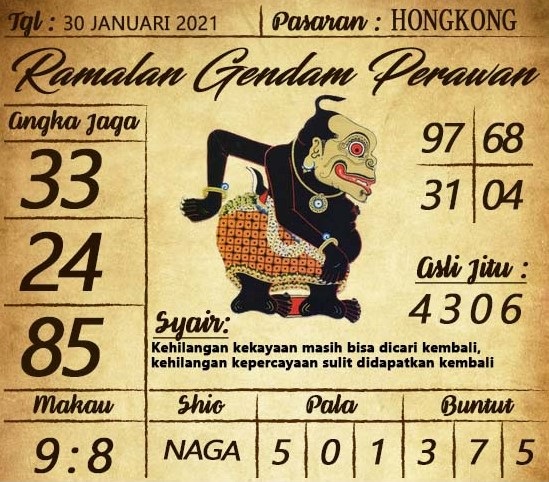 Tgl : 30 JANUARI 2021 Pasaran : HONGKONG
Ramalan Gendam Perawan
Angka Jaga
33
24
85
97 68
31 04
Asli Jitu :
4306
Syair:
Kehilangan kekayaan masih bisa dicari kembali,
kehilangan kepercayaan sulit didapatkan kembali
Makau Shio Pala Buntut
9:8 NAGA 5 0 1 3 7 5